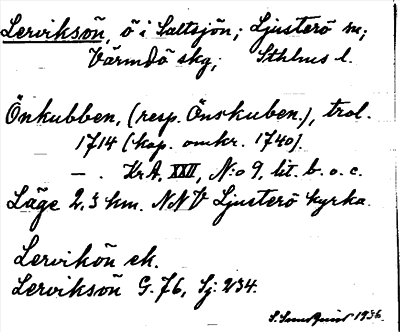 Lerviksön, ö i Saltsjön; Ljusterö sn;
Värmdö skg; Sthlms l.
Önkubben, (resp. Önskuben.), trol.
1714 (kop. omkr. 1740).
— . Kr.A. XXII, N:o 9, lit. b. o. c.
Läge 2.3 km. NNV Ljusterö kyrka.
Lervikön ek.
Lerviksön G. 76, Sj: 234.
1936